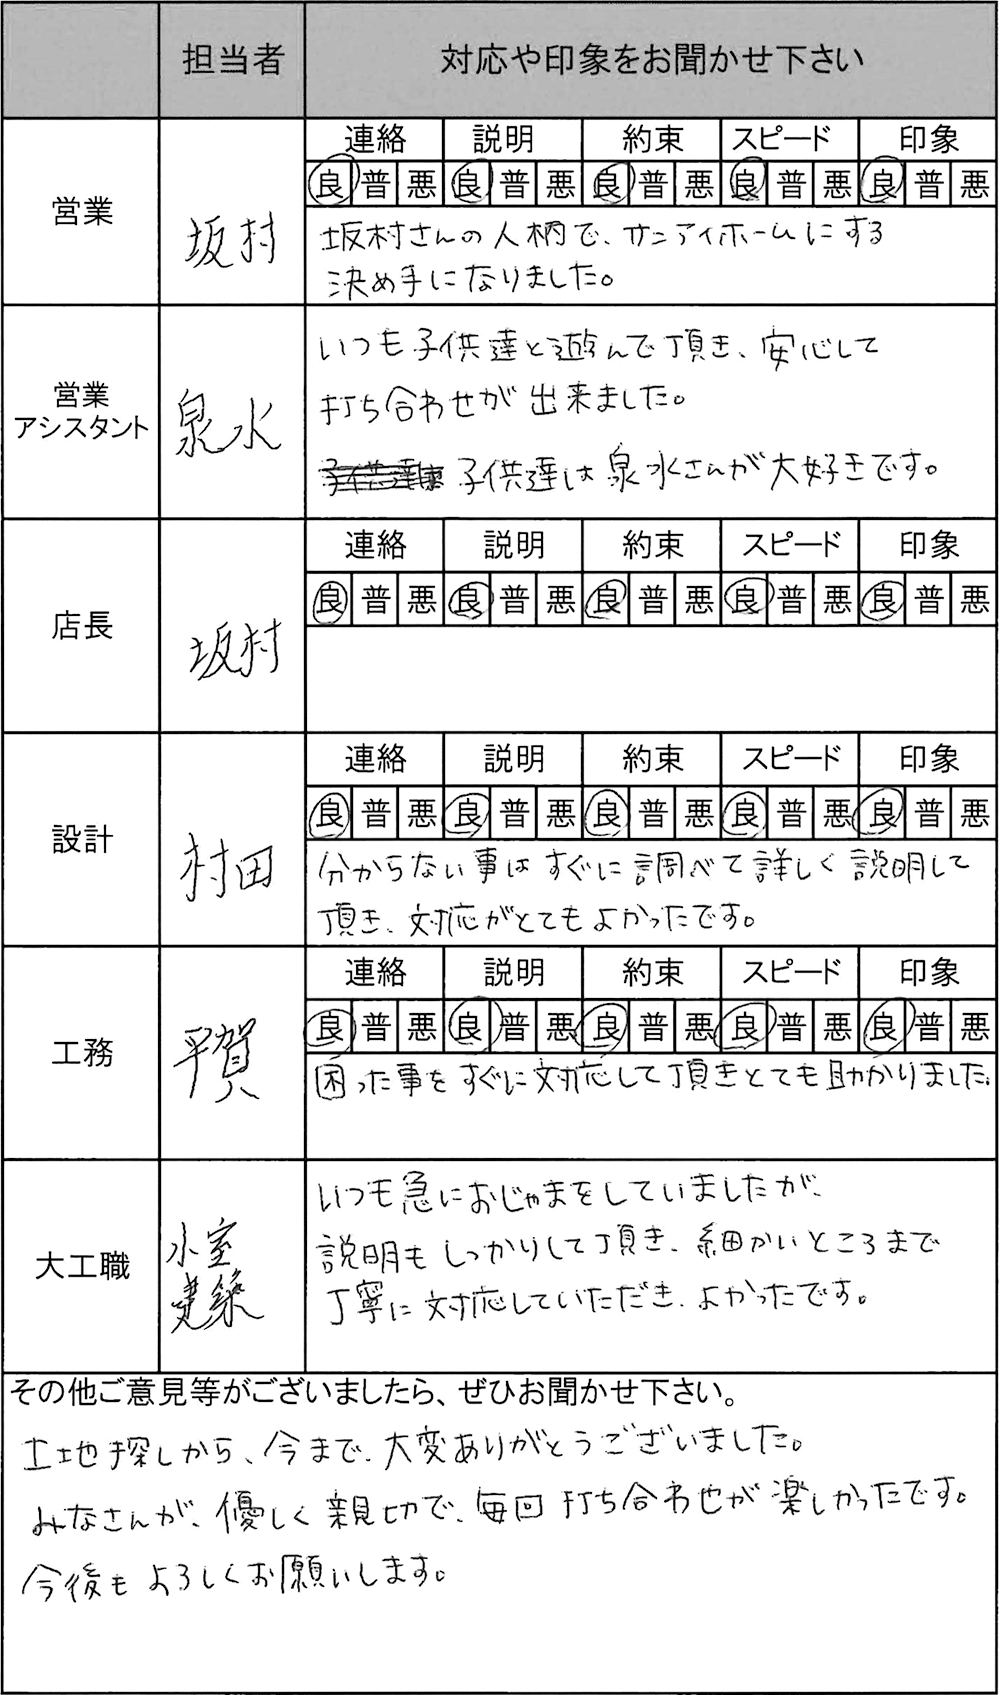 担当者 対応や印象をお聞かせ下さい
連絡 説明 約束 スピード 印象
良 普 悪 良 普 悪 良 普 悪 良 普 悪 良 普 悪
営業
坂村
坂村さんの人柄で、サンアイホームにする
決め手になりました。
営業
アシスタント
泉水
いつも子供達と遊んで頂き、安心して
打ち合わせが出来ました。
子供達は泉水さんが大好きです。
連絡 説明 約束 スピード 印象
良 普 悪 良 普 悪 良 普 悪 良 普 悪 良 普 悪
店長
坂村
連絡 説明 約束 スピード 印象
良 普 悪 良 普 悪 良 普 悪 良 普 悪 良 普 悪
設計
村田
分からない事はすぐに調べて詳しく説明して
頂き、対応がとてもよかったです。
連絡 説明 約束 スピード 印象
良 普 悪 良 普 悪 良 普 悪 良 普 悪 良 普 悪
工務
平賀
困った事をすぐに対応して頂きとても助かりました。
大工職
小室
建築
いつも急におじゃまをしていましたが、
説明もしっかりして頂き、細かいところまで
丁寧に対応していただき、よかったです。
その他ご意見等がございましたら、ぜひお聞かせ下さい。
土地探しから、今まで、大変ありがとうございました。
みなさんが、優しく親切で、毎回打ち合わせが楽しかったです。
今後もよろしくお願いします。